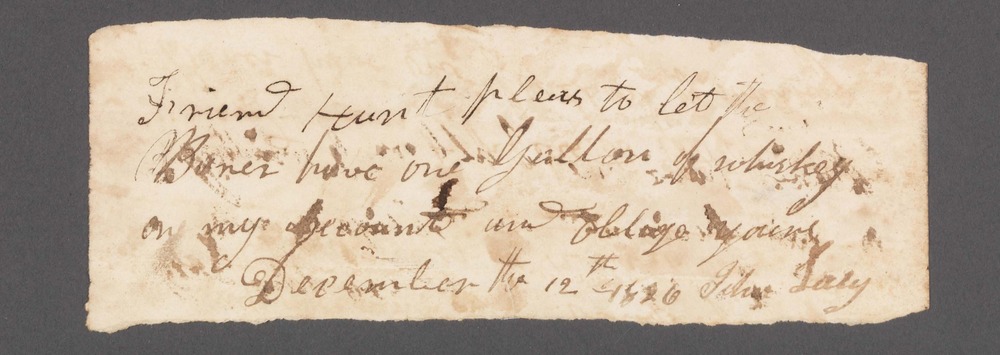 Friend Hunt pleas to let the
Barer have one Gallon of whiskey
on my account and oblige yours
December the 12th 1826 John Lacy